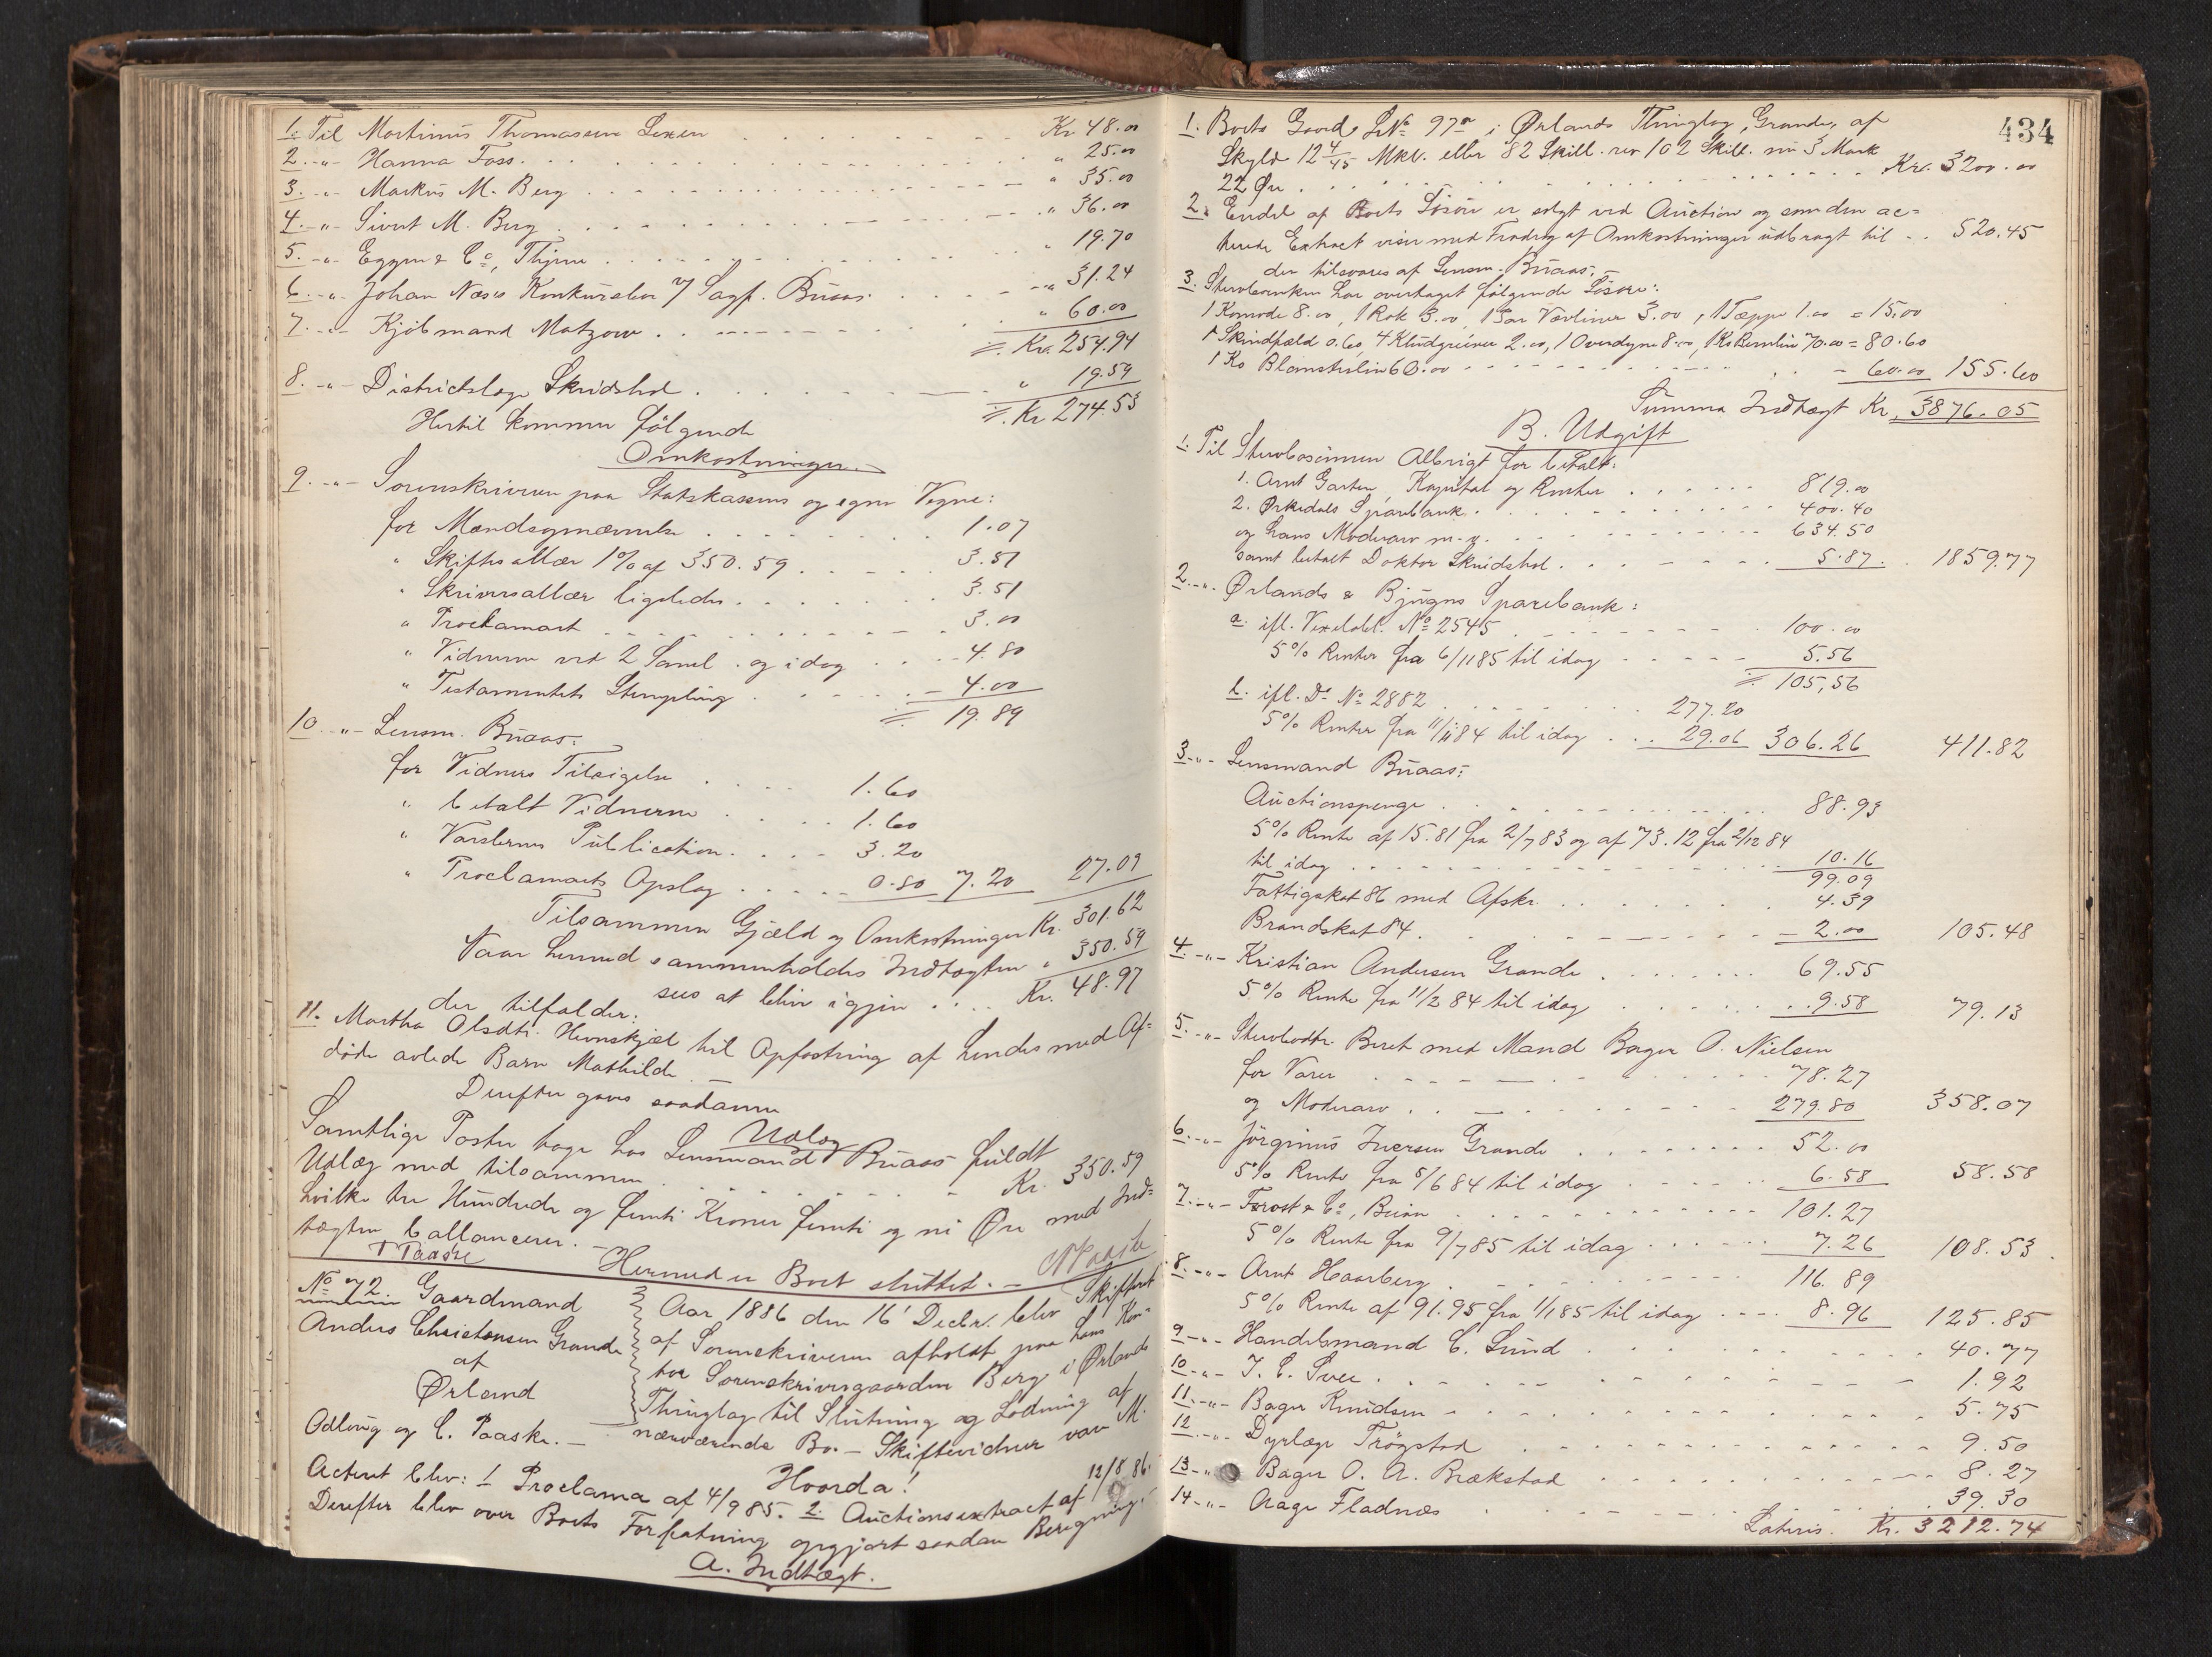 1. Til Martinus Thomassen Lexen . . . Kr. 48.00
2. -"- Hanna Foss . . . " 25.00
3. -"- Markus M. Berg . . . " 35.00
4. -"- Sivert M. Berg . . . " 36.00
5. -"- Eggen & Co, Thjem . . . " 19.70
6. -"- Johan Næss Konkursbo v/ Sagf. Buaas . . . " 31.24
7. -"- Kjöbmand Matzow . . . " 60.00
÷. Kr. 254.94
8. -"- Districtslæge Skridshol . . . " 19.59
÷. Kr. 274.53
Hertil kommer følgende
Omkostninger.
9. -"- Sorenskriveren paa Statskassens og egne Vegne:
for Mandsopnævnelse . . . 1.07
" Skiftesallær 1% af 350.59 . . . 3.51
" Skriversallær ligeledes . . . 3.51
" Proclamaet . . . 3.00
" Vidnerne ved 2 Saml. og idag . . . 4.80
" Testamentets Stempling . . . 4.00
÷ 19.89
10 -"- Lensm. Buaas:
for Vidners Tilsigelse . . . 1.60
" betalt Vidnerne . . . 1.60
" Varslernes Publication . . . 3.20
" Proclamaets Opslag . . . 0.80 7.20 27.09
Tilsammen Gjæld og Omkostninger Kr. 301.62
Naar hermed sammenholdes Indtægten " 350.59
sees at blive igjen . . . Kr. 48.97
der tilfalder:
11. Martha Olsdtr. Hernskjæl til Opfostring af hendes med Af=
døde avlede Barn Mathilde. —
Derefter gaves saadanne
Udlæg
Samtlige Poster tages hos Lensmand Buaas fuldt
Udlæg med tilsammen . . . Kr. 350.59
hvilke tre Hundrede og femti Kroner femti og ni Øre med Ind=
tægten ballancerer. —
Hermed er Boet sluttet. —
No 72. Gaardmand
Anders Christensen Grande
af
Ørland
Aar 1886 den 16' Decbr. blev Skifteret
af Sorenskriveren afholdt paa hans Kon=
tor Sorenskrivergaarden Berg i Ørlands
Thinglag til Slutning og Lodning af
nærværende Bo. — Skiftevidner var M.
Odlaug og C. Paaske. —
Hvorda!
Acteret blev: 1 Proclama af 4/9 85. 2. Auctionsextract af 12/8 86.
Derefter blev over Boets Forfatning opgjort saadan Beregning:
A. Indtægt.
434
1. Boets Gaard, LNo 97a i Ørlands Thinglag, Grande, af
Skyld 12 4/45 Mkl. eller 82 Skill. rev. 102 Skill. nu 3 Mark
22 Øre . . . Kr. 3200.00
2. Endel af Boets Løsøre er solgt ved Auction og som den ac=
terede Extract viser med Fradrag af Omkostninger udbragt til . . 520.45
der tilsvares af Lensm. Buaas. —
3. Stervboenken har overtaget følgende Løsøre:
1 Komode 8.00, 1 Rok 3.00, 1 Par Vævliner 3.00, 1 Tæppe 1.00 = 15.00
1 Skindfæld 0.60, 4 Kludgreiner 2.00, 1 Overdyne 8.00, 1 Ko Remlin 70.00 = 80.60
1 Ko Blomsterlin 60.00 . . . 60.00 155.60
Summa Indtægt Kr. 3876.05
B. Udgift
1. Til Stervbosønnen Albrigt for betalt:
1. Arnt Garten, Kapital og Renter . . . 819.00
2. Ørkedals Sparebank . . . 400.40
og hans Moderarv m. v. . . . 634.50
samt betalt Doktor Skridshol . . . 5.87 . 1859.77
2. -"- Ørlands & Bjugns Sparebank:
a. ifl. Vexelobl. No 2545 . . . 100.00
5% Renter fra 6/11 85 til idag . . . 5.56
÷ 105,56
b. ifl. Do No 2882 . . . 277.20
5% Renter fra 11/11 84 til idag . . . 29.06 306.26 411.82
3. -"- Lensmand Buaas:
Auctionspenge . . . 88.93
5% Rente af 15.81 fra 2/7 83 og af 73.12 fra 2/12 84
til idag . . . 10.16
99.09
Fattigskat 86 med Afskr. . . . 4.39
Brandskat 84 . . . 2.00 105.48
4. -"- Kristian Andersen Grande . . . 69.55
5% Rente fra 11/2 84 til idag . . . 9.58 79.13
5. -"- Stervbodtr. Beret med Mand Bager O. Nielsen
for Varer . . . 78.27
og Moderarv . . . 279.80 358.07
6. -"- Jørginus Iversen Grande . . . 52.00
5% Rente fra 5/6 84 til idag . . . 6.58 58.58
7. -"- Forost & Co, Beian . . . 101.27
5% Rente fra 9/7 85 til idag . . . 7.26 108.53
8. -"- Arnt Haarberg . . . 116.89
5% Rente af 91.95 fra 1/1 85 til idag . . . 8.96 125.85
9 -"- Handelsmand C. Lund . . . 40.77
10 -"- I. C. Svee . . . 1.92
11. -"- Bager Knudsen . . . 5.75
12 -"- Dyrlæge Trøgstad . . . 9.50
13 -"- Bager O. A. Brækstad . . . 8.27
14 -"- Aage Fladnæs . . . 39.30
Lateris. Kr. 3212.74